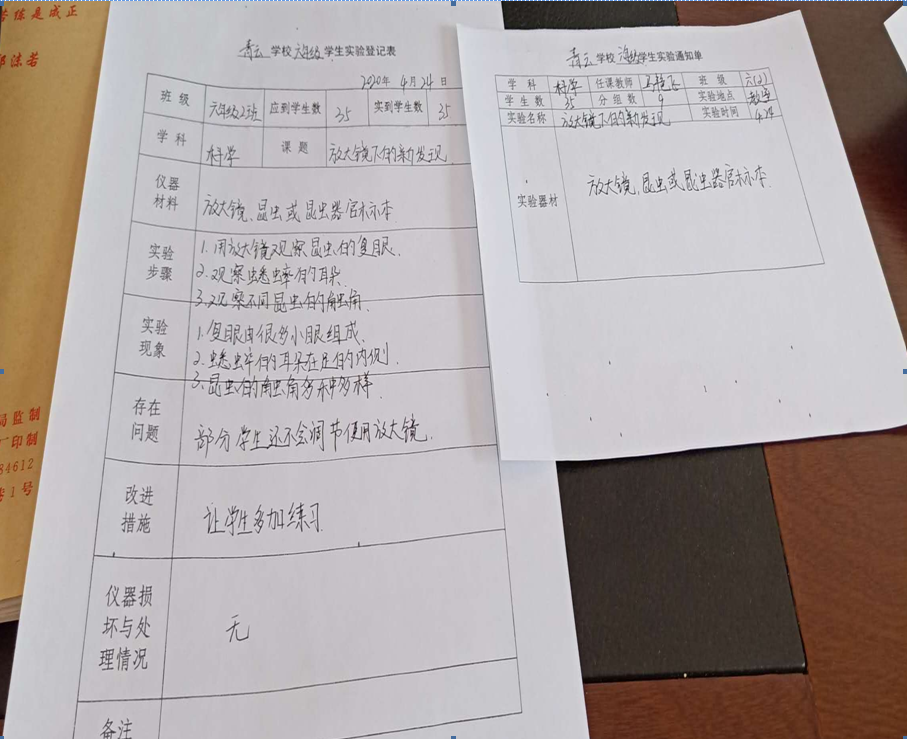 苦练是成正
郭沫若
局监制
印制
84612
1号
青云 学校 六年级 学生实验登记表
2020年 4月24日
班级 六年级2班 应到学生数 35 实到学生数 35
学科 科学 课题 放大镜下的新发现
仪器材料 放大镜、昆虫或昆虫器官标本
实验步骤 1. 用放大镜观察昆虫的复眼.
2. 观察蟋蟀的耳朵
3. 观察不同昆虫的触角
实验现象 1. 复眼由很多小眼组成.
2. 蟋蟀的耳朵在足的内侧.
3. 昆虫的触角多种多样.
存在问题 部分学生还不会调节使用放大镜.
改进措施 让学生多加练习
仪器损坏与处理情况 无
备注
青云 学校 学生实验通知单
学科 科学 任课教师 班级 六(2)
学生数 35 分组数 9 实验地点 教室
实验名称 放大镜下的新发现 实验时间 4.24
实验器材 放大镜、昆虫或昆虫器官标本.